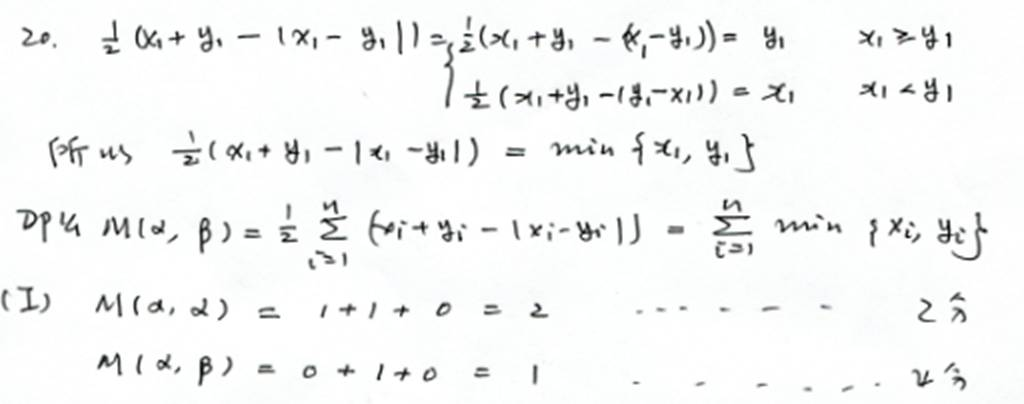 20. ½(x₁+y₁-|x₁-y₁|)={½(x₁+y₁-(x₁-y₁))=y₁ x₁≥y₁
½(x₁+y₁-(y₁-x₁))=x₁ x₁<y₁
所以 ½(x₁+y₁-|x₁-y₁|) = min{x₁, y₁}
所以 M(α, β)=½ ∑ⁿᵢ₌₁ (xᵢ+yᵢ-|xᵢ-yᵢ|) = ∑ⁿᵢ₌₁ min {xᵢ, yᵢ}
(I) M(α, α) = 1+1+0 = 2 ...... 2分
M(α, β) = 0+1+0 = 1 ...... 4分